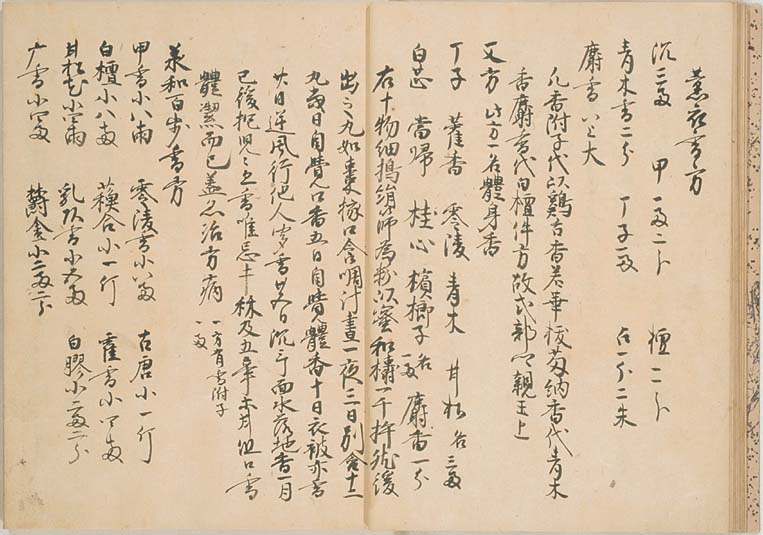 薫衣香方
沉三両 甲一両二分 檀二分
青木香二分 丁子一両 占一分二朱
麝香 以上大
香麝香代白檀件方故式部卿親王上
又方 此方一名體身香
丁子 藿香 零陵 青木 甘松 各三両
白芷 當歸 桂心 檳榔子 各一両 麝香一分
右十物細搗絹篩為粉以蜜和搗一千杵然後
出之丸如棗核口含咽汁晝一夜三日別含十二
丸當日自覺口香五日自覺體香十日衣被亦香
廿日逆風行他人聞香廿五日洗手面水落地香一月
已後抱兒兒亦香唯忌蒜及五辛 但口香
體潔而已盖亦治方病 一方有香附子一両
承和百歩香方
甲香小八両 零陵香小八両 古唐小一斤
白檀小八両 蘇合小一斤 藿香小四両
甘松花小 両 乳頭香小五両 白膠小二両二分
广香小 両 欝金小二両二分